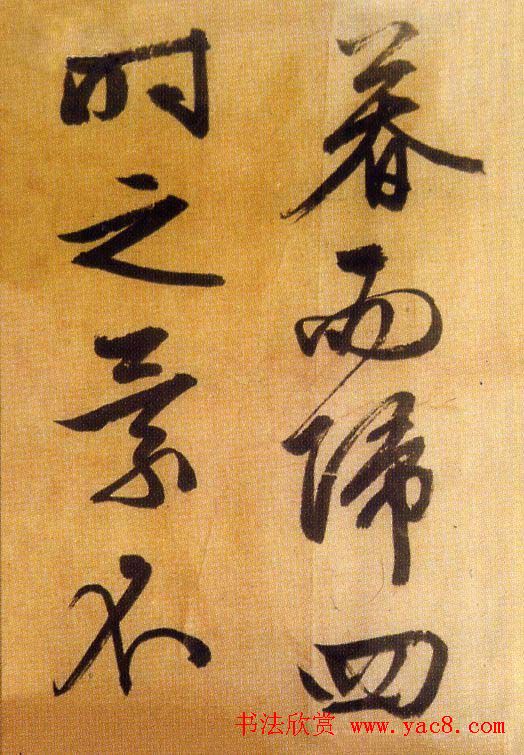 暮而歸四
時之景不
书法欣赏 www.yac8.com